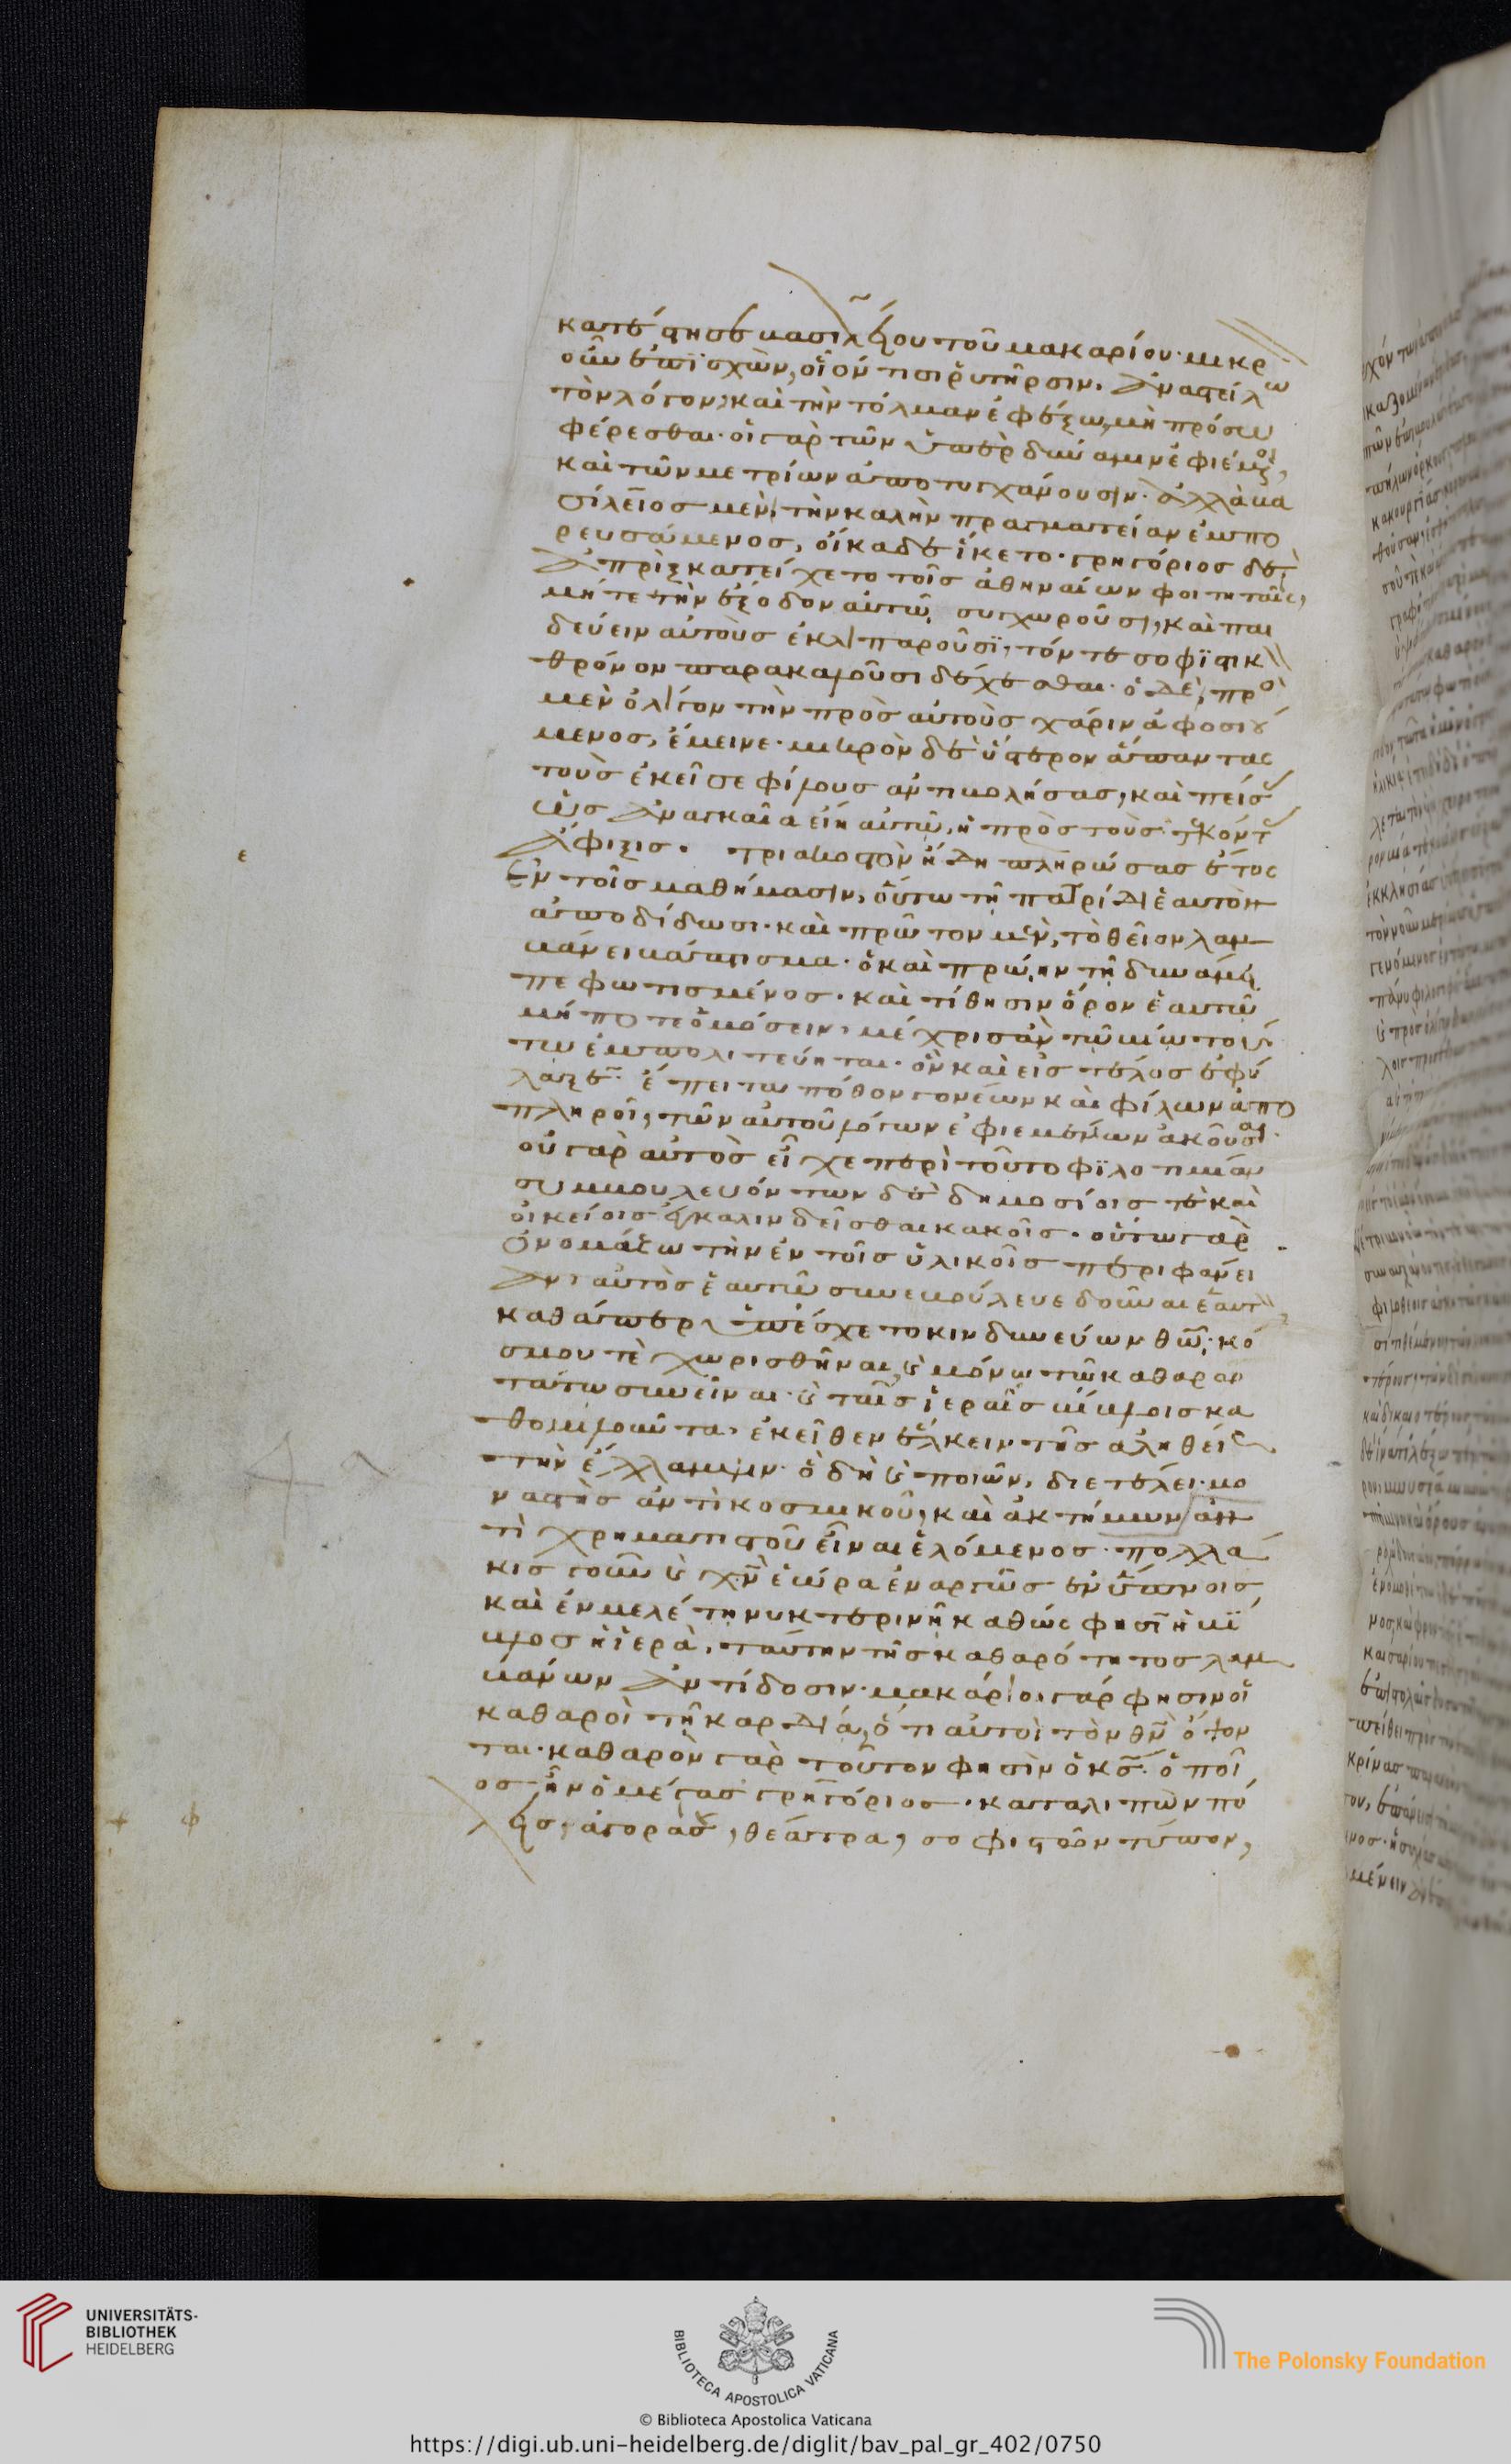 κατέστησε βασιλείου τοῦ μακαρίου· μικρ
οὖν ἐπισχὼν, οἷόν τισι ῥυτῆρσιν. ἀναστείλω
τὸν λόγον, καὶ τὴν τόλμαν ἐφέξω, μὴ πρόσω
φέρεσθαι. οἱ γὰρ τῶν ὑπὲρ δύναμιν ἐφιέμενοι,
καὶ τῶν μετρίων ἀποτυγχάνουσιν. ἀλλὰ βα
σίλειος μὲν, τὴν καλὴν πραγματείαν ἐμπο
ρευσάμενος, οἴκαδε ἵκετο. γρηγόριος δὲ
ἀπρὶξ κατείχετο τοῖς ἀθηναίων φοιτηταῖς,
μήτε τὴν ἔξοδον αὐτῷ συγχωροῦσι, καὶ παι
δεύειν αὐτοὺς ἐκλιπαροῦσι, τόν τε σοφιστικ
θρόνον παρακαλοῦσι δέχεσθαι. ὁ δὲ, πρὸ
μὲν ὀλίγον τὴν πρὸς αὐτοὺς χάριν ἀφοσιού
μενος, ἔμεινε. μικρὸν δὲ ὕστερον ἅπαντας
τοὺς ἐκεῖσε φίλους ἀντιβολήσας, καὶ πείσας
ὡς ἀναγκαῖα εἴη αὐτῷ, ἡ πρὸς τοὺς τεκόντας
ἄφιξις. τριακοστὸν ἤδη πληρώσας ἔτος
ἐν τοῖς μαθήμασιν, οὕτω τῇ πατρίδι ἑαυτὸν
ἀποδίδωσι. καὶ πρῶτον μὲν, τὸ θεῖον λαμ
βάνει βάπτισμα. ὃ καὶ πρώην τῇ δυνάμει
πεφωτισμένος. καὶ τίθησιν ὅρον ἑαυτῷ
μήποτε ὀμόσειν, μέχρις ἂν τῷ βίῳ τού
τω ἐμπολιτεύηται. ὃν καὶ εἰς τέλος ἐφύ
λαξεν. ἔπειτα πόθον γονέων καὶ φίλων ἀπο
πληροῖ, τῶν αὐτοῦ λόγων ἐφιεμένων ἀκοῦσαι.
οὐ γὰρ αὐτὸς εἶχε περὶ τοῦτο φιλοτιμίαν
συμβουλευόντων δὲ δημοσίοις τε καὶ
οἰκείοις ἐγκαλινδεῖσθαι κακοῖς. οὕτω γὰρ
ὀνομάζω τὴν ἐν τοῖς ὑλικοῖς περιφάνει
αν, αὐτὸς ἑαυτῷ συνεβούλευε δοῦναι ἑαυτ
καθάπερ ὑπέσχετο κινδυνεύων θῶ. κό
σμου τὲ χωρισθῆναι, καὶ μόνω τῶ καθαρω
τάτω συνεῖναι. καὶ ταῖς ἱεραῖς βίβλοις κα
θομιλοῦντα, ἐκεῖθεν ἕλκειν τῆς ἀληθείας
τὴν ἔλλαμψιν. ὃ δὴ καὶ ποιῶν, διετέλει. μο
ναστὴς ἀντὶ κοσμικοῦ, καὶ ἀκτήμων ἀν
τὶ χρηματιστοῦ εἶναι ἑλόμενος. πολλά
κις γοῦν καὶ χν ἑώρα ἐναργῶς ἐν ὕπνοις
καὶ ἐν μελέτη νυκτερινῆ καθώς φησιν ἡ βί
βλος ἡ ἱερὰ, ταύτην τῆς καθαρότητος λαμ
βάνων ἀντίδοσιν. μακάριοι γάρ φησιν οἱ
καθαροὶ τῇ καρδία, ὅτι αὐτοὶ τὸν θν ὄψον
ται. καθαρὸν γὰρ τοῦτον φησὶν ὁ κς. ὁποῖ
ος ἦν ὁ μέγας γρηγόριος. καταλιπὼν πό
λεις, ἀγορὰς, θέατρα, σοφιστῶν τύπον,
ε
φ
UNIVERSITÄTS-
BIBLIOTHEK
HEIDELBERG
BIBLIOTECA APOSTOLICA VATICANA
The Polonsky Foundation
© Biblioteca Apostolica Vaticana
https://digi.ub.uni-heidelberg.de/diglit/bav_pal_gr_402/0750